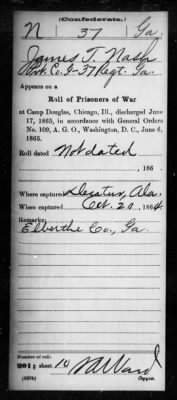 (Confederate.)
N 37 Ga.
James T. Nash
Pvt. Co. I-37 Regt. Ga.
Appears on a
Roll of Prisoners of War
at Camp Douglas, Chicago, Ill., discharged June
17, 1865, in accordance with General Orders
No. 109, A. G. O., Washington, D. C., June 6,
1865.
Roll dated Not dated
, 186
Where captured Decatur, Ala.
When captured Oct. 20, 1864
Remarks:
Elberthe Co., Ga.
Number of roll:
201; sheet 10
Ward
Copyist.